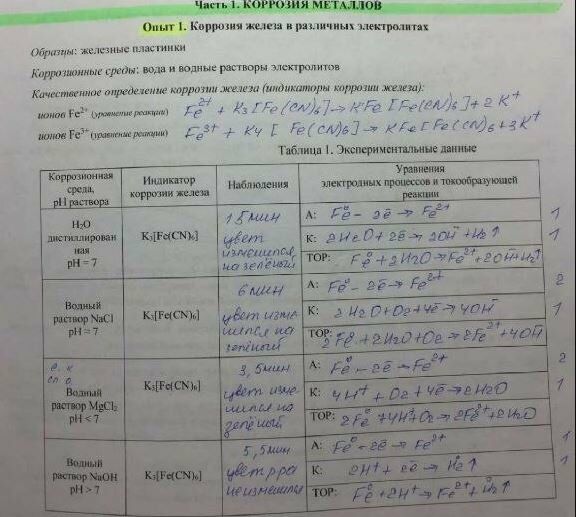 Часть 1. КОРРОЗИЯ МЕТАЛЛОВ
Опыт 1. Коррозия железа в различных электролитах
Образцы: железные пластинки
Коррозионные среды: вода и водные растворы электролитов
Качественное определение коррозии железа (индикаторы коррозии железа):
ионов Fe²⁺ (уравнение реакции) Fe²⁺ + K₃[Fe(CN)₆] → KFe[Fe(CN)₆] + 2K⁺
ионов Fe³⁺ (уравнение реакции) Fe³⁺ + K₄[Fe(CN)₆] → KFe[Fe(CN)₆ + 3K⁺
Таблица 1. Экспериментальные данные
Коррозионная среда, pH раствора
Индикатор коррозии железа
Наблюдения
Уравнения электродных процессов и токообразующей реакции
H₂O дистиллированная pH = 7
K₃[Fe(CN)₆]
15 мин цвет изменился на зелёный
А: Fe⁰ - 2ē → Fe²⁺ 1
К: 2H₂O + 2ē → 2OH⁻ + H₂↑ 1
ТОР: Fe⁰ + 2H₂O → Fe²⁺ + 2OH⁻ + H₂↑
Водный раствор NaCl pH = 7
K₃[Fe(CN)₆]
6 мин цвет изменился на зелёный
А: Fe⁰ - 2ē → Fe²⁺ 2
К: 2H₂O + O₂ + 4ē → 4OH⁻ 1
ТОР: 2Fe⁰ + 2H₂O + O₂ → 2Fe²⁺ + 4OH⁻
Водный раствор MgCl₂ pH < 7
K₃[Fe(CN)₆]
3,5 мин цвет изменился на зелёный
А: Fe⁰ - 2ē → Fe²⁺ 2
К: 4H⁺ + O₂ + 4ē → 2H₂O 1
ТОР: 2Fe⁰ + 4H⁺ + O₂ → 2Fe²⁺ + 2H₂O
Водный раствор NaOH pH > 7
K₃[Fe(CN)₆]
5,5 мин цвет р-ра не изменился
А: Fe⁰ - 2ē → Fe²⁺ 1
К: 2H⁺ + 2ē → H₂↑ 1
ТОР: Fe⁰ + 2H⁺ → Fe²⁺ + H₂↑